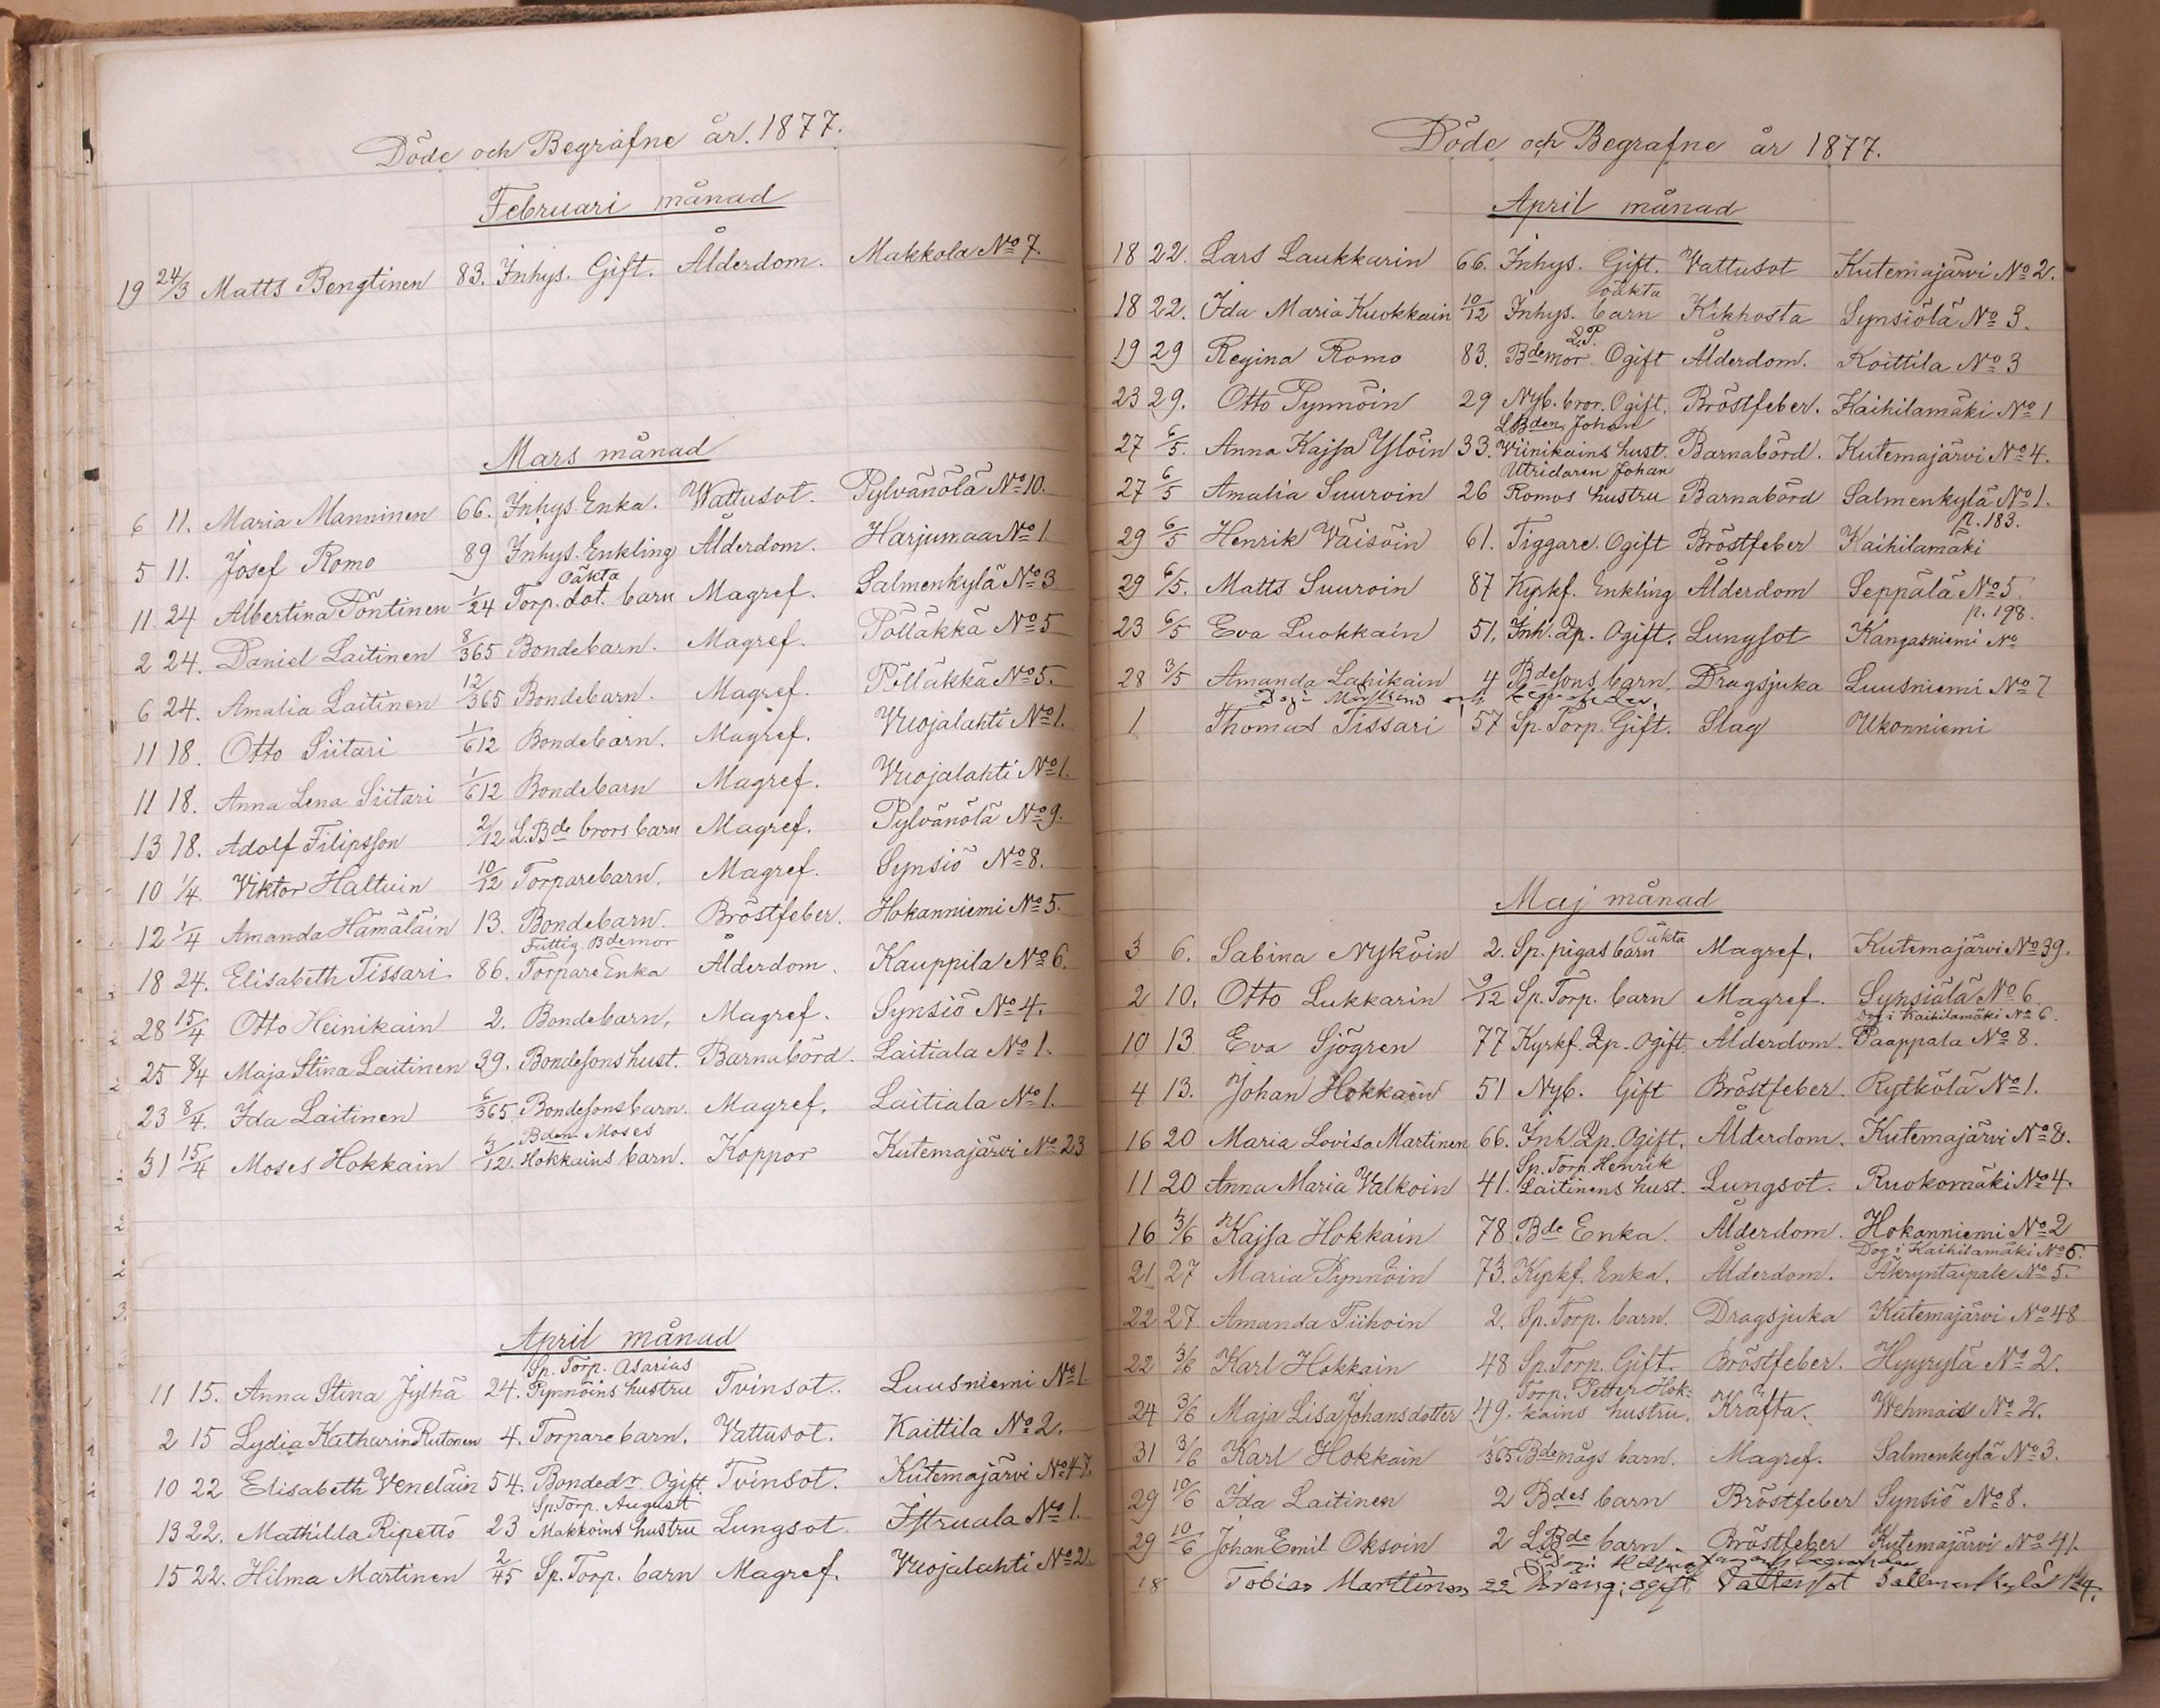 Döde och Begrafne år. 1877.
Februari månad
19 24/3 Matts Bengtinen 83. Inhys. Gift. Ålderdom. Makkola No 7.
Mars månad
6 11. Maria Manninen 66. Inhys. Enka. Wattusot. Pylvänölä No 10.
5 11. Josef Romo 89 Inhys. Enkling Ålderdom. Harjumaa No 1
oäkta
11. 24 Albertina Pöntinen 1/24 Torp. dot. barn Magref. Salmenkylä No 3
2 24. Daniel Laitinen 8/365 Bondebarn. Magref. Pölläkkä No 5
6 24. Amalia Laitinen 12/365 Bondebarn. Magref. Pölläkkä No 5.
11 18. Otto Siitari 1/612 Bondebarn. Magref. Vuojalahti No 1.
11 18. Anna Lena Siitari 1/612 Bondebarn Magref. Vuojalahti No 1.
13 18. Adolf Filipsson 2/12 L. Bde brors barn Magref. Pylvänölä No 9.
10 1/4 Viktor Haltuin 10/12 Torparebarn. Magref. Synsiö No 8.
12 1/4 Amanda Hämäläin 13. Bondebarn. Bröstfeber. Hokanniemi No 5.
Fattig. Bdemor
18 24. Elisabeth Tissari 86. Torpare Enka Ålderdom. Kauppila No 6.
28 15/4 Otto Heinikain 2. Bondebarn. Magref. Synsiö No 4.
25 8/4 Maja Stina Laitinen 39. Bondesons hust. Barnabörd. Laitiala No 1.
23 8/4. Ida Laitinen 6/365. Bondesons barn. Magref. Laitiala No 1.
Bden Moses
31 15/4 Moses Hokkain 3/12. Hokkains barn. Koppor Kutemajärvi No 23
April månad
Sp. Torp. Asarias
11 15. Anna Stina Jylhä 24. Pynnöins hustru Tvinsot. Luusniemi No 1
2 15 Lydia Katharin Rutonen 4. Torparebarn. Vattusot. Kaittila No 2.
10 22 Elisabeth Veneläin 54. Bondedr. Ogift Tvinsot. Kutemajärvi No 47.
Sp. Torp. August
13 22. Mathilda Ripettö 23 Makkoins hustru Lungsot. Istruala No 1.
15 22. Hilma Martinen 2/45 Sp. Torp. barn Magref. Vuojalahti No 2.
Döde och Begrafne år 1877.
April månad
18 22. Lars Laukkarin 66. Inhys. Gift. Vattusot Kutemajärvi No 2.
oäkta
18 22. Ida Maria Kuokkain 10/12 Inhys. barn Kikhosta Synsiölä No 3.
Q.P.
19 29 Regina Romo 83. Bdemor. Ogift Ålderdom. Koittila No 3
23 29. Otto Pynnöin 29 Nyb. bror. Ogift. Bröstfeber. Kaihilamäki No 1
L. Bden. Johan
27 6/5. Anna Kajsa Ylöin 33. Viinikains hust. Barnabörd. Kutemajärvi No 4.
Utridaren Johan
27 6/5 Amalia Suuroin 26 Romos hustru Barnabörd Salmenkylä No 1.
p. 183.
29 6/5 Henrik Väisöin 61. Tiggare. Ogift Bröstfeber Kaihilamäki
29 6/5. Matts Suuroin 87 Kyrkf. Enkling Ålderdom Seppälä No 5
p. 198.
23 6/5 Eva Luokkain 51. Inh. Qp. Ogift. Lungsot Kangasniemi No
28 3/5 Amanda Lahikain 4 Bdesons barn. Dragsjuka Luusniemi No 7
1 Thomas Tissari 57 Sp. Torp. Gift. Slag Ukonniemi
Maj månad
Oäkta
3 6. Sabina Nyköin 2. Sp. pigas barn Magref. Kutemajärvi No 39.
2 10. Otto Lukkarin 9/12 Sp. Torp. barn Magref. Synsiälä No 6.
Dog i Kaihilamäki No 6.
10 13 Eva Sjögren 77 Kyrkf. Qp. Ogift. Ålderdom. Paappala No 8.
4 13. Johan Hokkain 51 Nyb. Gift Bröstfeber. Rytkölä No 1.
16 20 Maria Lovisa Martinen 66. Inh. Qp. Ogift. Ålderdom. Kutemajärvi No 8.
Sp. Torp. Henrik
11 20 Anna Maria Valkoin 41. Laitinens hust. Lungsot. Ruokomäki No 4.
16 3/6 Kajsa Hokkain 78. Bde Enka. Ålderdom. Hokanniemi No 2
Dog i Kaihilamäki No 6.
21 27 Maria Pynnöin 73. Kyrkf. Enka. Ålderdom. Äkryntaipale No 5.
22 27. Amanda Tiihoin 2. Sp. Torp. barn. Dragsjuka Kutemajärvi No 48
22 3/6 Karl Hokkain 48 Sp. Torp. Gift. Bröstfeber. Hyyrylä No 2.
Torp. Petter Hok-
24 3/6 Maja Lisa Johansdotter 49. kains hustru. Kräfta. Wehmais No 2.
31 3/6 Karl Hokkain 1/365 Bdemågs barn. Magref. Salmenkylä No 3.
29 10/6 Ida Laitinen 2 Bdes barn Bröstfeber Synsiö No 8.
29 10/6 Johan Emil Oksoin 2 L. Bde barn. Bröstfeber Kutemajärvi No 41.
18 Tobias Marttinen 22 Dreng; ogift Vattusot Sallmenkylä No 4.